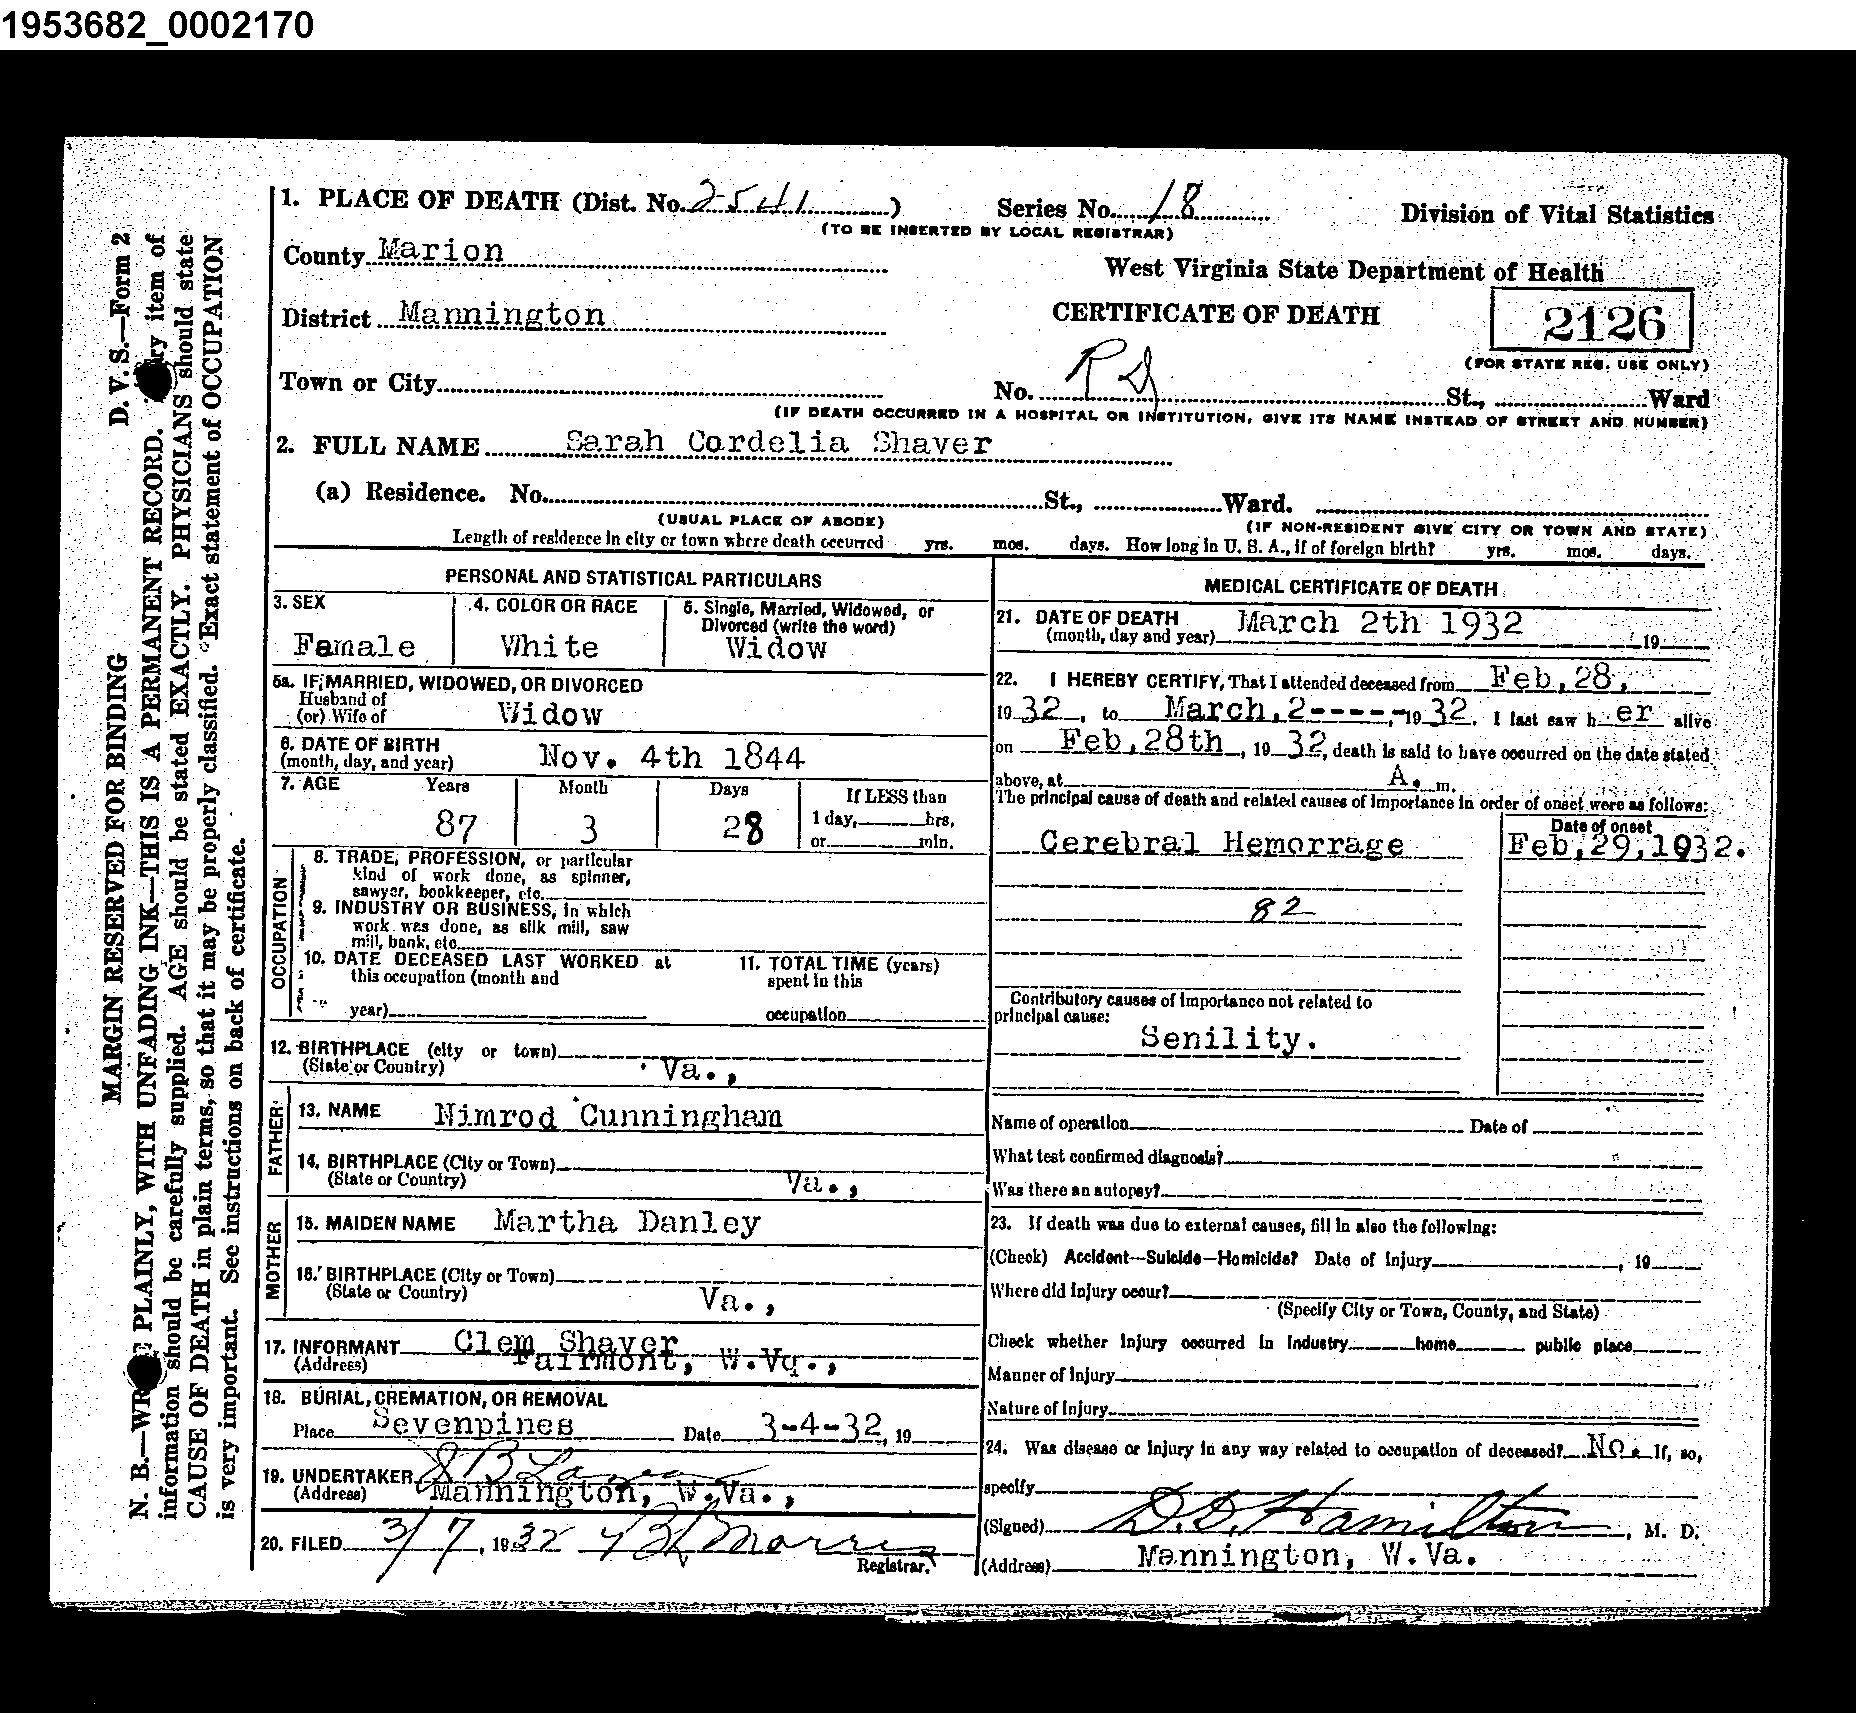 1953682_0002170
1. PLACE OF DEATH (Dist. No. 2541) Series No. 18 Division of Vital Statistics
(TO BE INSERTED BY LOCAL REGISTRAR)
County Marion
West Virginia State Department of Health
District Mannington CERTIFICATE OF DEATH 2126
(FOR STATE REG. USE ONLY)
Town or City No. R D St., Ward
(IF DEATH OCCURRED IN A HOSPITAL OR INSTITUTION, GIVE ITS NAME INSTEAD OF STREET AND NUMBER)
2. FULL NAME Sarah Cordelia Shaver
(a) Residence. No. St., Ward.
(USUAL PLACE OF ABODE) (IF NON-RESIDENT GIVE CITY OR TOWN AND STATE)
Length of residence in city or town where death occurred yrs. mos. days. How long in U. S. A., if of foreign birth? yrs. mos. days.
PERSONAL AND STATISTICAL PARTICULARS
3. SEX 4. COLOR OR RACE 5. Single, Married, Widowed, or
Divorced (write the word)
Famale White Widow
5a. IF MARRIED, WIDOWED, OR DIVORCED
Husband of
(or) Wife of Widow
6. DATE OF BIRTH
(month, day, and year) Nov. 4th 1844
7. AGE Years Month Days If LESS than
87 3 28 1 day, hrs,
or min.
OCCUPATION
8. TRADE, PROFESSION, or particular
kind of work done, as spinner,
sawyer, bookkeeper, etc.
9. INDUSTRY OR BUSINESS, in which
work was done, as silk mill, saw
mill, bank, etc.
10. DATE DECEASED LAST WORKED at 11. TOTAL TIME (years)
this occupation (month and spent in this
year) occupation
12. BIRTHPLACE (city or town)
(State or Country) Va.,
FATHER
13. NAME Nimrod Cunningham
14. BIRTHPLACE (City or Town)
(State or Country) Va.,
MOTHER
15. MAIDEN NAME Martha Danley
16. BIRTHPLACE (City or Town)
(State or Country) Va.,
17. INFORMANT Clem Shaver
(Address) Fairmont, W.Va.,
18. BURIAL, CREMATION, OR REMOVAL
Place Sevenpines Date 3-4-32, 19
19. UNDERTAKER
(Address) Mannington, W.Va.,
20. FILED 3/7, 1932 Morris
Registrar.
MEDICAL CERTIFICATE OF DEATH
21. DATE OF DEATH March 2th 1932
(month, day and year) 19
22. I HEREBY CERTIFY, That I attended deceased from Feb,28,
1932, to March,2-----, 1932. I last saw her alive
on Feb,28th, 1932, death is said to have occurred on the date stated
above, at A. m.
The principal cause of death and related causes of importance in order of onset were as follows:
Date of onset
Cerebral Hemorrage Feb,29,1932.
82
Contributory causes of importance not related to
principal cause:
Senility.
Name of operation Date of
What test confirmed diagnosis?
Was there an autopsy?
23. If death was due to external causes, fill in also the following:
(Check) Accident—Suicide—Homicide? Date of Injury , 19
Where did injury occur?
(Specify City or Town, County, and State)
Check whether injury occurred in industry home public place
Manner of Injury
Nature of Injury
24. Was disease or injury in any way related to occupation of deceased? No. If, so,
specify
(Signed) D.D. Hamilton, M. D.
(Address) Mannington, W.Va.
D. V. S.—Form 2
MARGIN RESERVED FOR BINDING
N. B.—WR PLAINLY, WITH UNFADING INK—THIS IS A PERMANENT RECORD. ry item of
information should be carefully supplied. AGE should be stated EXACTLY. PHYSICIANS should state
CAUSE OF DEATH in plain terms, so that it may be properly classified. Exact statement of OCCUPATION
is very important. See instructions on back of certificate.